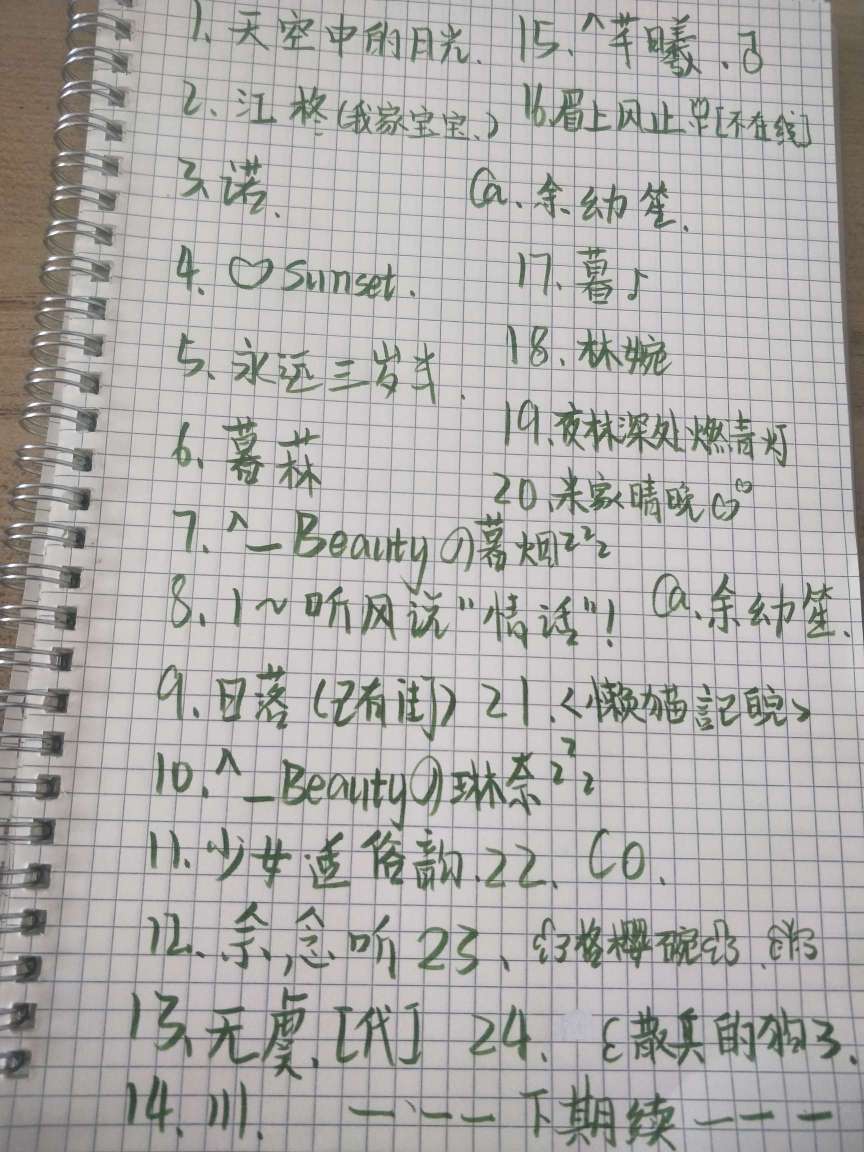 1、天空中的月光. 15.^芊曦.♂
2、江柊(我家宝宝、) 16.眉上风止 [不在线]
3、诺.
Ca、余幼笙.
4、♡Sunset. 17.暮♪
5、永远三岁半. 18、林婉
6、暮菻 19、夜林深处燃青灯
20、米家晴晚
7、^_Beautyの暮烟zzz
8、1~听风说"情话"! Ca、余幼笙.
9、日落(已有街) 21.<懒猫記睨>
10.^_Beautyの琳奈zzz
11.少女适俗韵. 22、CO.
12、余,念昕 23、
13、无虞、[代] 24、ξ散兵的狗3.
14、川. 一·一一下期续一一一